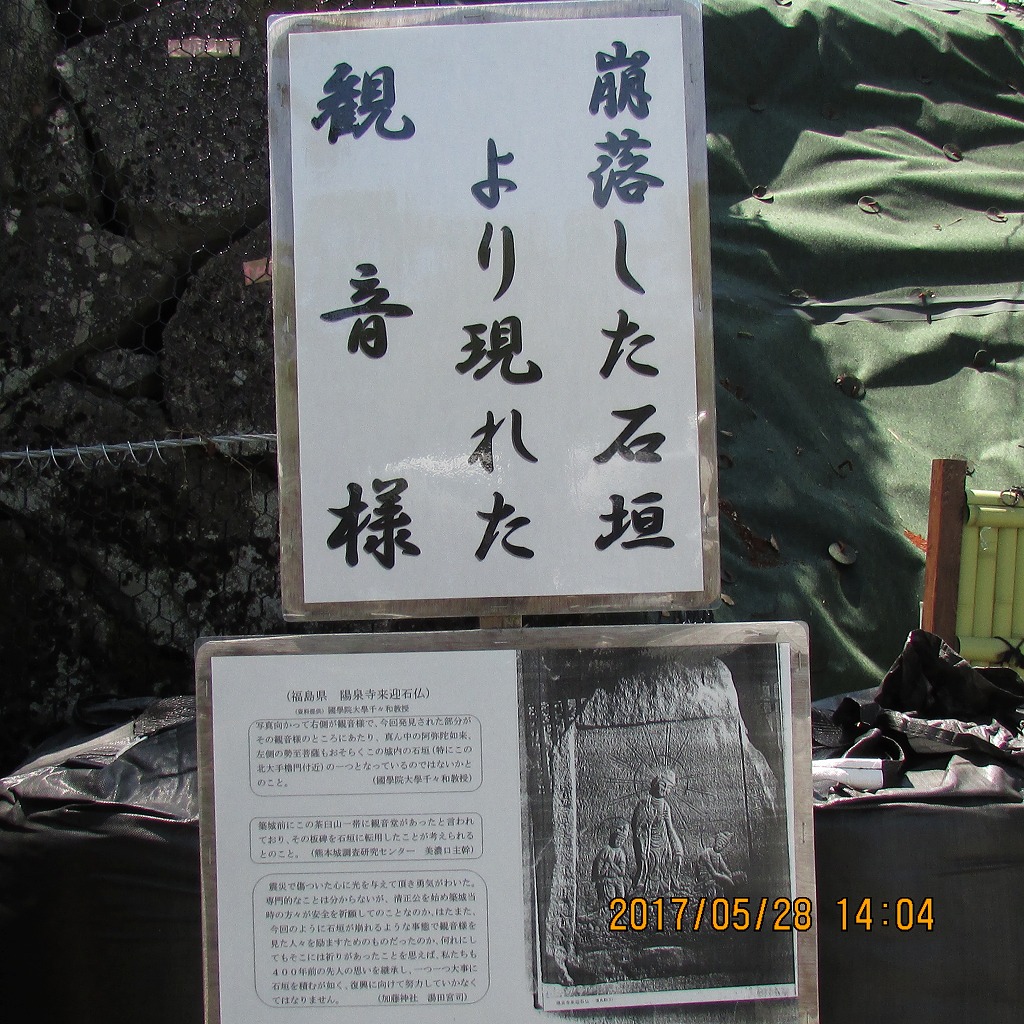 崩落した石垣
より現れた
観音様
(福島県　陽泉寺来迎石仏)
(資料提供) 國學院大學千々和教授
写真向かって右側が観音様で、今回発見された部分が
その観音様のところにあたり、真ん中の阿弥陀如来、
左側の勢至菩薩もおそらくこの城内の石垣(特にここの
北大手櫓門付近)の一つとなっているのではないかと
のこと。　(國學院大學千々和教授)
築城前にこの茶臼山一帯に観音堂があったと言われ
ており、その板碑を石垣に転用したことが考えられる
とのこと。(熊本城調査研究センター　美濃口主幹)
震災で傷ついた心に光を与えて頂き勇気がわいた。
専門的なことは分からないが、清正公を始め築城当
時の方々が安全を祈願してのことなのか、はたまた、
今回のように石垣が崩れるような事態で観音様を
見た人々を励ますためのものだったのか、何れにし
てもそこには祈りがあったことを思えば、私たちも
400年前の先人の思いを継承し、一つ一つ大事に
石垣を積むが如く、復興に向けて努力していかなく
てはなりません。　(加藤神社　湯田宮司)
2017/05/28 14:04